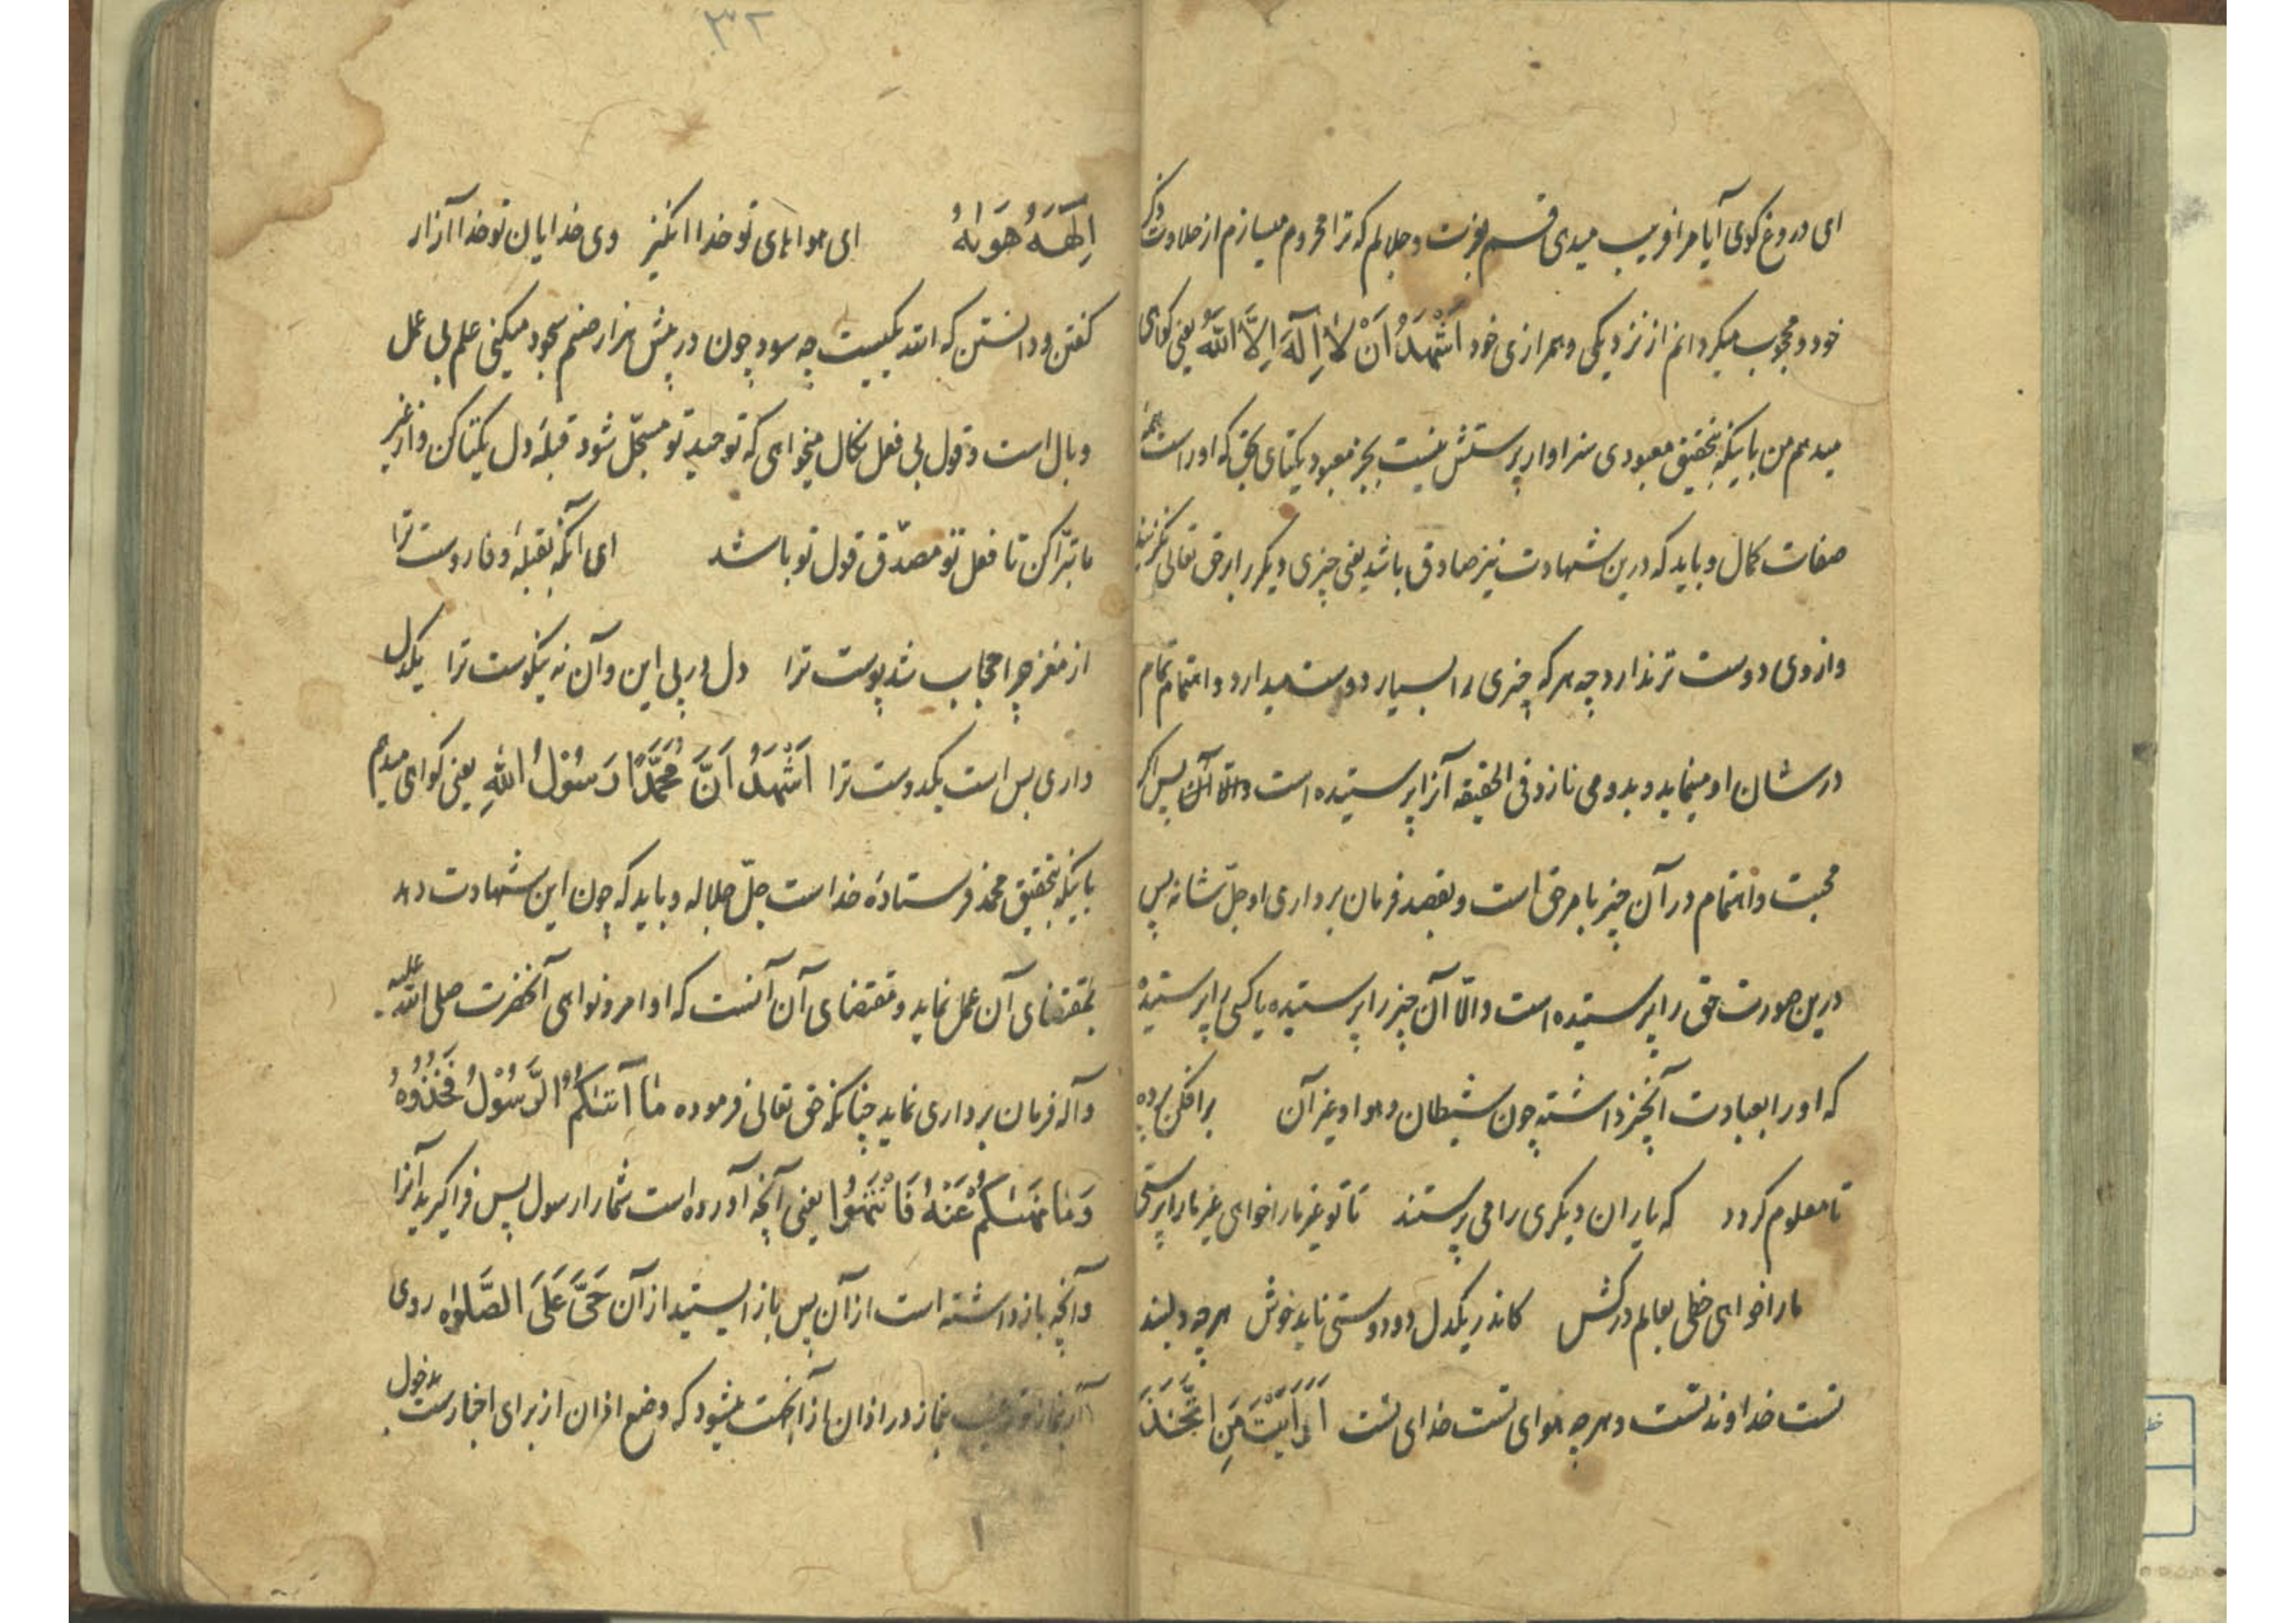 ای دروغ کوی آیا مرا فریب میدی قسم بعزت و جلالم که ترا محروم میسازم از حلاوت ذکر
خود و محجوب میکردانم از نزدیکی و همرازی خود اَشْهَدُ اَنْ لاٰ اِلٰهَ اِلَّا اللّٰهُ یعنی کواهی
میدهم من باینکه بتحقیق معبودی سزاوار پرستش نیست بجز معبود یکتای بحق که اوراست
صفات کمال و باید که درین شهادت نیز صادق باشد یعنی چیزی دیکر را بر حق تعالی نکزیند
و از وی دوست تر ندارد چه هر که چیزی را بسیار دوست میدارد و اهتمام تمام
در شان او مینماید و بدو می نازد فی الحقیقه آنرا پرستیده است پس اکر
محبت و اهتمام در آن چیز بامر حق است و بقصد فرمان برداری او جلّ شانه پس
درین صورت حق را پرستیده است و الّا آن چیز را پرستیده یا کسی را پرستیده
که او را بعبادت آنچیز داشته چون شیطان و هوا و غیر آن برافکن پرده
تا معلوم کردد که یاران دیکری را می پرستند تا تو غیر ما را خواهی غیر ما را پرستی
ما را خواهی خطی بعالم درکش کاندر یکدل دو دوستی ناید خوش هر چه دلبند
تست خداوند تست و هر چه هوای تست خدای تست اَرَاَیْتَ مَنِ اتَّخَذَ
٣٢
اِلٰهَهُ هَوٰیهُ ای هواهای تو خدا انکیز وی خدایان تو خدا آزار
کفتن و دانستن که الله یکیست چه سود چون در پیش هزار صنم سجود میکنی علم بی عمل
وبال است و قول بی فعل نکال میخواهی که توحید تو مسجّل شود قبلهٔ دل یکتا کن و از غیر
ما تبرّا کن تا فعل تو مصدّق قول تو باشد ای آنکه بقبلهٔ وفا روست ترا
از مغز چرا حجاب شد پوست ترا دل در پی این و آن نه نیکوست ترا یکدل
داری بس است یکدوست ترا اَشْهَدُ اَنَّ مُحَمَّدًا رَسُوْلُ اللّٰهِ یعنی کواهی میدهم
باینکه بتحقیق محمد فرستادهٔ خداست جلّ جلاله و باید که چون این شهادت دهد
بمقتضای آن عمل نماید و مقتضای آن آنست که اوامر و نواهی آنحضرت صلی الله علیه
و آله فرمان برداری نماید چنانکه حق تعالی فرموده مٰا آتٰیکُمُ الرَّسُوْلُ فَخُذُوْهُ
وَمٰا نَهٰیکُمْ عَنْهُ فَانْتَهُوْا یعنی آنچه آورده است شما را رسول پس فراکیرید آنرا
و آنچه بازداشته است از آن پس باز ایستید از آن حَیَّ عَلَی الصَّلٰوٰه روی
آر بنماز ترغیب بنماز در اذان از آنجهت میشود که وضع اذان از برای اخبارست بدخول